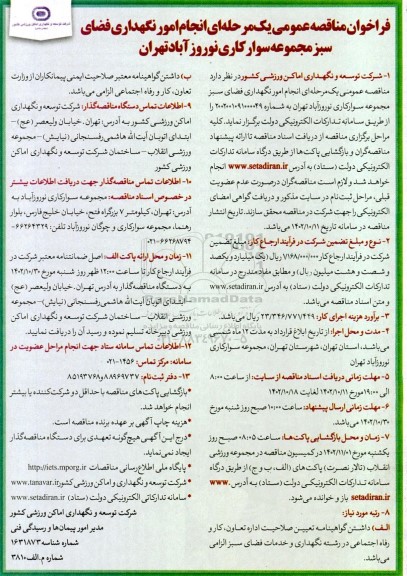 فراخوان مناقصه عمومی یک مرحله‌ای انجام امور نگهداری فضای
سبز مجموعه سوارکاری نوروز آباد تهران
۱- شرکت توسعه و نگهداری اماکن ورزشی کشور در نظر دارد
مناقصه عمومی یک مرحله‌ای انجام امور نگهداری فضای سبز
مجموعه سوارکاری نوروزآباد تهران به شماره ۲۰۰۲۰۰۱۰۹۱۰۰۰۰۴۹ را
از طریق سامانه تدارکات الکترونیکی دولت برگزار نماید. کلیه
مراحل برگزاری مناقصه از دریافت اسناد مناقصه تا ارائه پیشنهاد
مناقصه‌گران و بازگشایی پاکت‌ها از طریق درگاه سامانه تدارکات
الکترونیکی دولت (ستاد) به آدرس www.setadiran.ir انجام
خواهد شد و لازم است مناقصه‌گران در صورت عدم عضویت
قبلی، مراحل ثبت‌نام در سایت مذکور و دریافت گواهی امضای
الکترونیکی را جهت شرکت در مناقصه محقق سازند. تاریخ انتشار
مناقصه در سامانه تاریخ ۱۴۰۲/۱۰/۱۱ می‌باشد.
۲- نوع و مبلغ تضمین شرکت در فرآیند ارجاع کار: مبلغ تضمین
شرکت در فرآیند ارجاع کار ۱/۱۶۸/۰۰۰/۰۰۰ ریال (یک میلیارد و یکصد
و شصت و هشت میلیون ریال) و مطابق مفاد مندرج در سامانه
تدارکات الکترونیکی دولت (ستاد) به آدرس www.setadiran.ir
و متن اسناد مناقصه می‌باشد.
۳- برآورد هزینه اجرای کار: ۲۳/۳۴۶/۷۷۱/۴۲۹ ریال می‌باشد.
۴- مدت و محل اجرا: از تاریخ ابلاغ قرارداد به مدت ۱۲ ماه شمسی
می‌باشد. استان تهران، شهرستان تهران، مجموعه سوارکاری
نوروزآباد تهران
۵- مهلت زمانی دریافت اسناد مناقصه از سایت: از ساعت ۸:۰۰
الی ۱۹:۰۰ مورخ ۱۴۰۲/۱۰/۱۱ لغایت ۱۴۰۲/۱۰/۱۸
۶- مهلت زمانی ارسال پیشنهاد: ساعت ۱۰:۰۰ صبح روز شنبه مورخ
۱۴۰۲/۱۰/۳۰ می‌باشد.
۷- زمان و محل بازگشایی پاکت‌ها: ساعت ۰۸:۰۵ صبح روز
یکشنبه مورخ ۱۴۰۲/۱۱/۰۱ در کمیسیون مناقصه در مجموعه ورزشی
انقلاب (تالار نصرت) پاکت‌های (الف، ب و ج) از طریق درگاه
سامانه تدارکات الکترونیکی دولت (ستاد) به آدرس www.
setadiran.ir باز و خوانده می‌شود.
۸- رتبه مورد نیاز:
الف) داشتن گواهینامه تعیین صلاحیت اداره تعاون، کار و
رفاه اجتماعی در رشته نگهداری و خدمات فضای سبز الزامی
می‌باشد.
ب) داشتن گواهینامه معتبر صلاحیت ایمنی پیمانکاران از وزارت
تعاون، کار و رفاه اجتماعی الزامی می‌باشد.
۹- اطلاعات تماس دستگاه مناقصه‌گذار: شرکت توسعه و نگهداری
اماکن ورزشی کشور به آدرس: تهران، خیابان ولیعصر (عج)-
ابتدای اتوبان آیت‌الله هاشمی رفسنجانی (نیایش)- مجموعه
ورزشی انقلاب- ساختمان شرکت توسعه و نگهداری اماکن
ورزشی کشور
۱۰- اطلاعات تماس مناقصه‌گذار جهت دریافت اطلاعات بیشتر
در خصوص اسناد مناقصه: مجموعه سوارکاری نوروزآباد به
آدرس: تهران، کیلومتر ۷ بزرگراه فتح، خیابان خلیج فارس، بلوار
رهنما، مجموعه سوارکاری و چوگان نوروزآباد تلفن: ۶۶۲۶۴۳۲۹-
۰۲۱-۶۶۲۶۸۷۹۴
۱۱- زمان و محل ارائه پاکت الف: اصل ضمانتنامه معتبر شرکت در
فرآیند ارجاع کار تا ساعت ۱۲:۰۰ ظهر روز شنبه مورخ ۱۴۰۲/۱۰/۳۰
به دستگاه مناقصه‌گذار به آدرس تهران، خیابان ولیعصر (عج)
ابتدای اتوبان آیت‌الله هاشمی رفسنجانی (نیایش)- مجموعه
ورزشی انقلاب- ساختمان شرکت توسعه و نگهداری اماکن
ورزشی دبیرخانه تسلیم نموده و رسید آن را دریافت نمایید.
۱۲- اطلاعات تماس سامانه ستاد جهت انجام مراحل عضویت در
سامانه: مرکز تماس: ۱۴۵۶-۰۲۱
۱۳- دفتر ثبت‌نام: ۸۸۹۶۹۷۳۷ و ۸۵۱۹۳۷۶۸
• بازگشایی پاکت‌های مناقصه با حداقل دو شرکت‌کننده یا بیشتر
انجام خواهد شد.
• هزینه چاپ آگهی بر عهده برنده مناقصه است.
• درج این آگهی هیچ‌گونه تعهدی برای دستگاه مناقصه‌گذار
ایجاد نمی‌نماید.
• پایگاه ملی اطلاع‌رسانی مناقصات http://iets.mporg.ir
• توسعه و نگهداری اماکن ورزشی کشور www.tanavar.ir
• سامانه تدارکاتی الکترونیکی دولت (ستاد) www.setadiran.ir
شرکت توسعه و نگهداری اماکن ورزشی کشور
مدیر امور پیمان‌ها و رسیدگی فنی
شماره شناسه ۱۶۳۱۸۷۳
شماره م.الف ۳۸۱۰